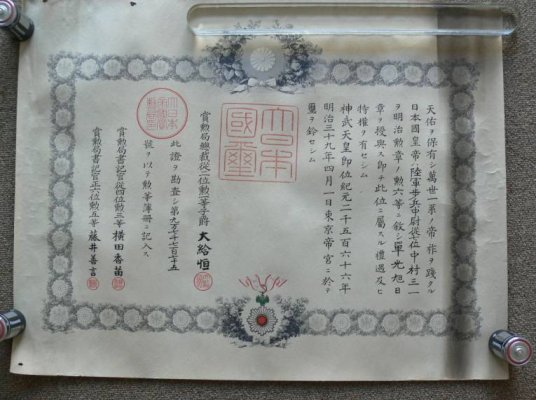 天佑ヲ保有シ萬世一系ノ帝祚ヲ踐タル
日本國皇帝ハ陸軍歩兵中尉從七位中村三一
ヲ明治勲章ノ勲六等ニ叙シ單光旭日
章ヲ授與ス即チ此位ニ屬スル禮遇及ヒ
特權ヲ有セシム
神武天皇即位紀元二千五百六十六年
明治三十九年四月一日東京帝宮ニ於テ
璽ヲ鈐セシム
大日本
國璽
賞勲局總裁從二位勲一等子爵 大給恒
此證ヲ勘査シ第九万
號ヲ以テ勲等簿冊ニ記入ス
賞勲局書記官從四位勲三等 横田香苗
賞勲局書記官正六位勲五等 藤井善言